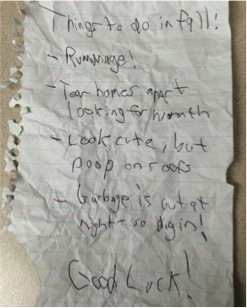 Things to do in fall!
- Rummage!
- Tear homes apart
looking for warmth
- Look cute, but
poop on roofs
- Garbage is out at
night - so dig in!
Good Luck!